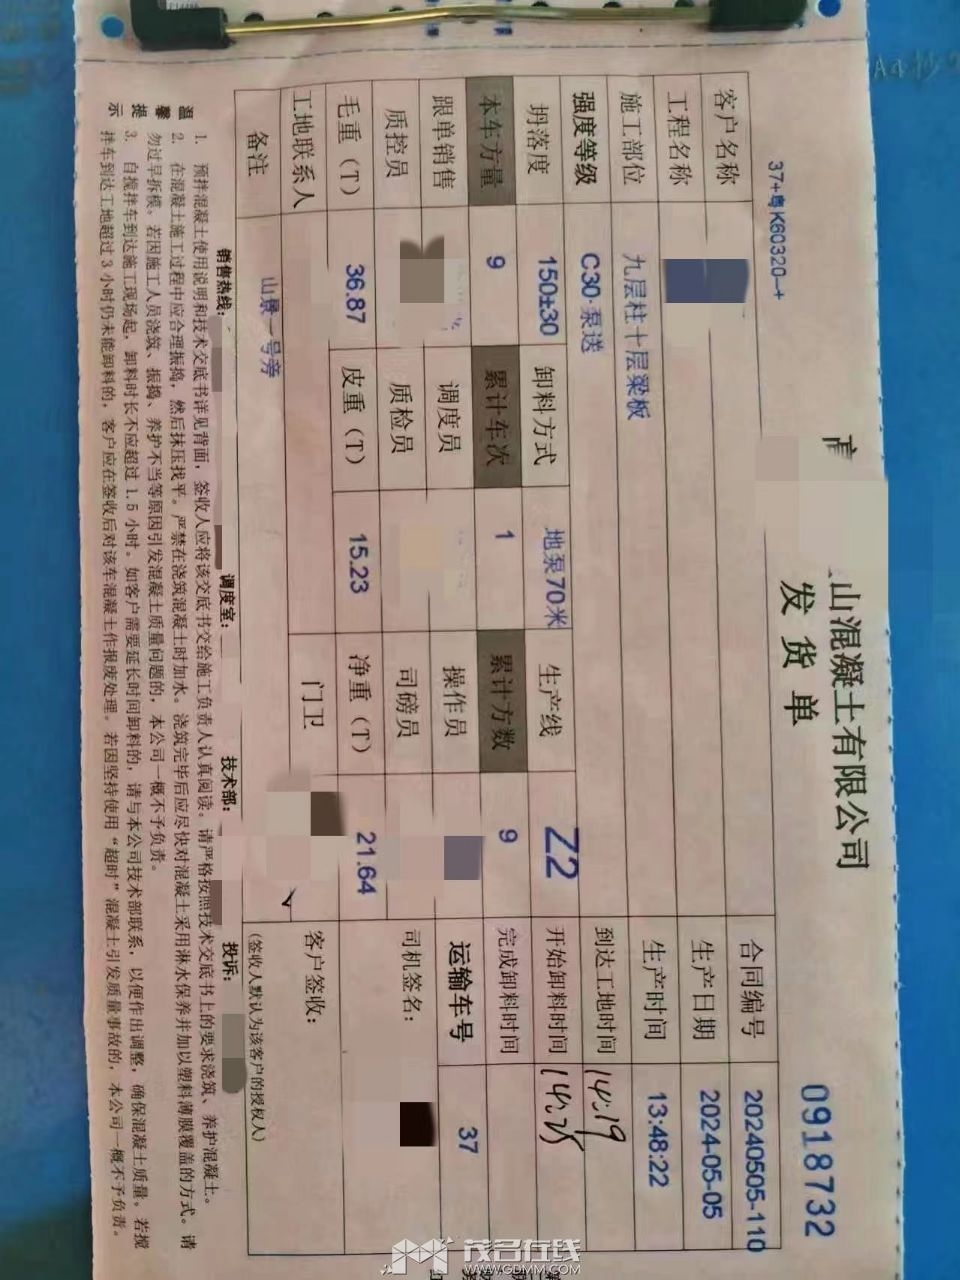 山混凝土有限公司
发货单
0918732
37+粤K60320-+
客户名称
合同编号 20240505-110
工程名称
生产日期 2024-05-05
施工部位 九层柱十层梁板
生产时间 13:48:22
强度等级 C30·泵送
到达工地时间 14:19
坍落度 150±30 卸料方式 地泵70米 生产线 Z2
开始卸料时间 14:25
本车方量 9 累计车次 1 累计方数 9
完成卸料时间
跟单销售 调度员 操作员
运输车号 37
质控员 质检员 司磅员
司机签名：
毛重（T） 36.87 皮重（T） 15.23 净重（T） 21.64
工地联系人 门卫
客户签收：
备注 山景一号旁
(签收人默认为该客户的授权人)
销售热线： 调度室： 技术部： 投诉：
温馨提示
1. 预拌混凝土使用说明和技术交底书详见背面，签收人应将该交底书交给施工负责人认真阅读。请严格按照技术交底书上的要求浇筑、养护混凝土。
2. 在混凝土施工过程中应合理振捣，然后抹压找平。严禁在浇筑混凝土时加水。浇筑完毕后应尽快对混凝土采用淋水保养并加以塑料薄膜覆盖的方式。请
勿过早拆模。若因施工人员浇筑、振捣、养护不当等原因引发混凝土质量问题的，本公司一概不予负责。
3. 自搅拌车到达施工现场起，卸料时长不应超过1.5小时。如客户需要延长时间卸料的，请与本公司技术部联系，以便作出调整，确保混凝土质量。若搅
拌车到达工地超过3小时仍未能卸料的，客户应在签收后对该车混凝土作报废处理。若因坚持使用“超时”混凝土引发质量事故的，本公司一概不予负责。
茂名在线
WWW.GDMM.COM